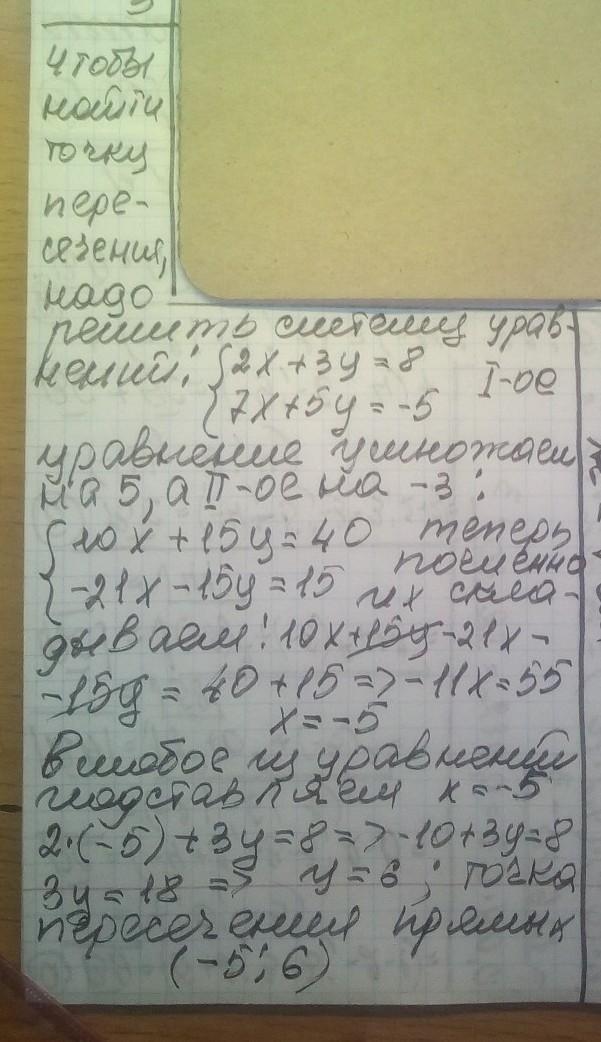 Чтобы
найти
точку
пере-
сечения,
надо
решить систему урав-
нений: {2x+3y=8
{7x+5y=-5 I-ое
уравнение умножаем
на 5, а II-ое на -3:
{10x+15y=40 теперь
почленно
{-21x-15y=15 их скла-
дываем: 10x+15y-21x-
-15y = 40+15 => -11x=55
x=-5
в любое из уравнений
подставляем x=-5
2·(-5)+3y=8=>-10+3y=8
3y=18 => y=6; точка
пересечения прямых
(-5;6)